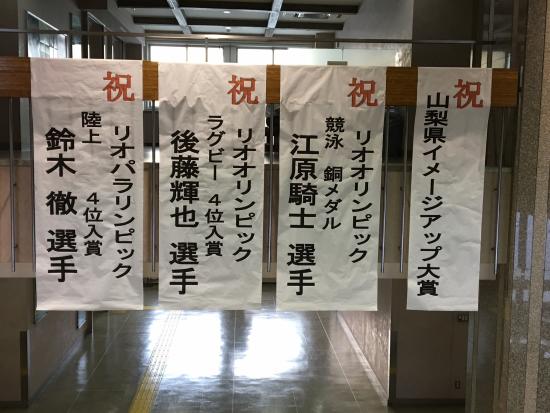 祝
山梨県イメージアップ大賞
祝
リオオリンピック
競泳 銅メダル
江原騎士 選手
祝
リオオリンピック
ラグビー 4位入賞
後藤輝也 選手
祝
リオパラリンピック
陸上 4位入賞
鈴木 徹 選手